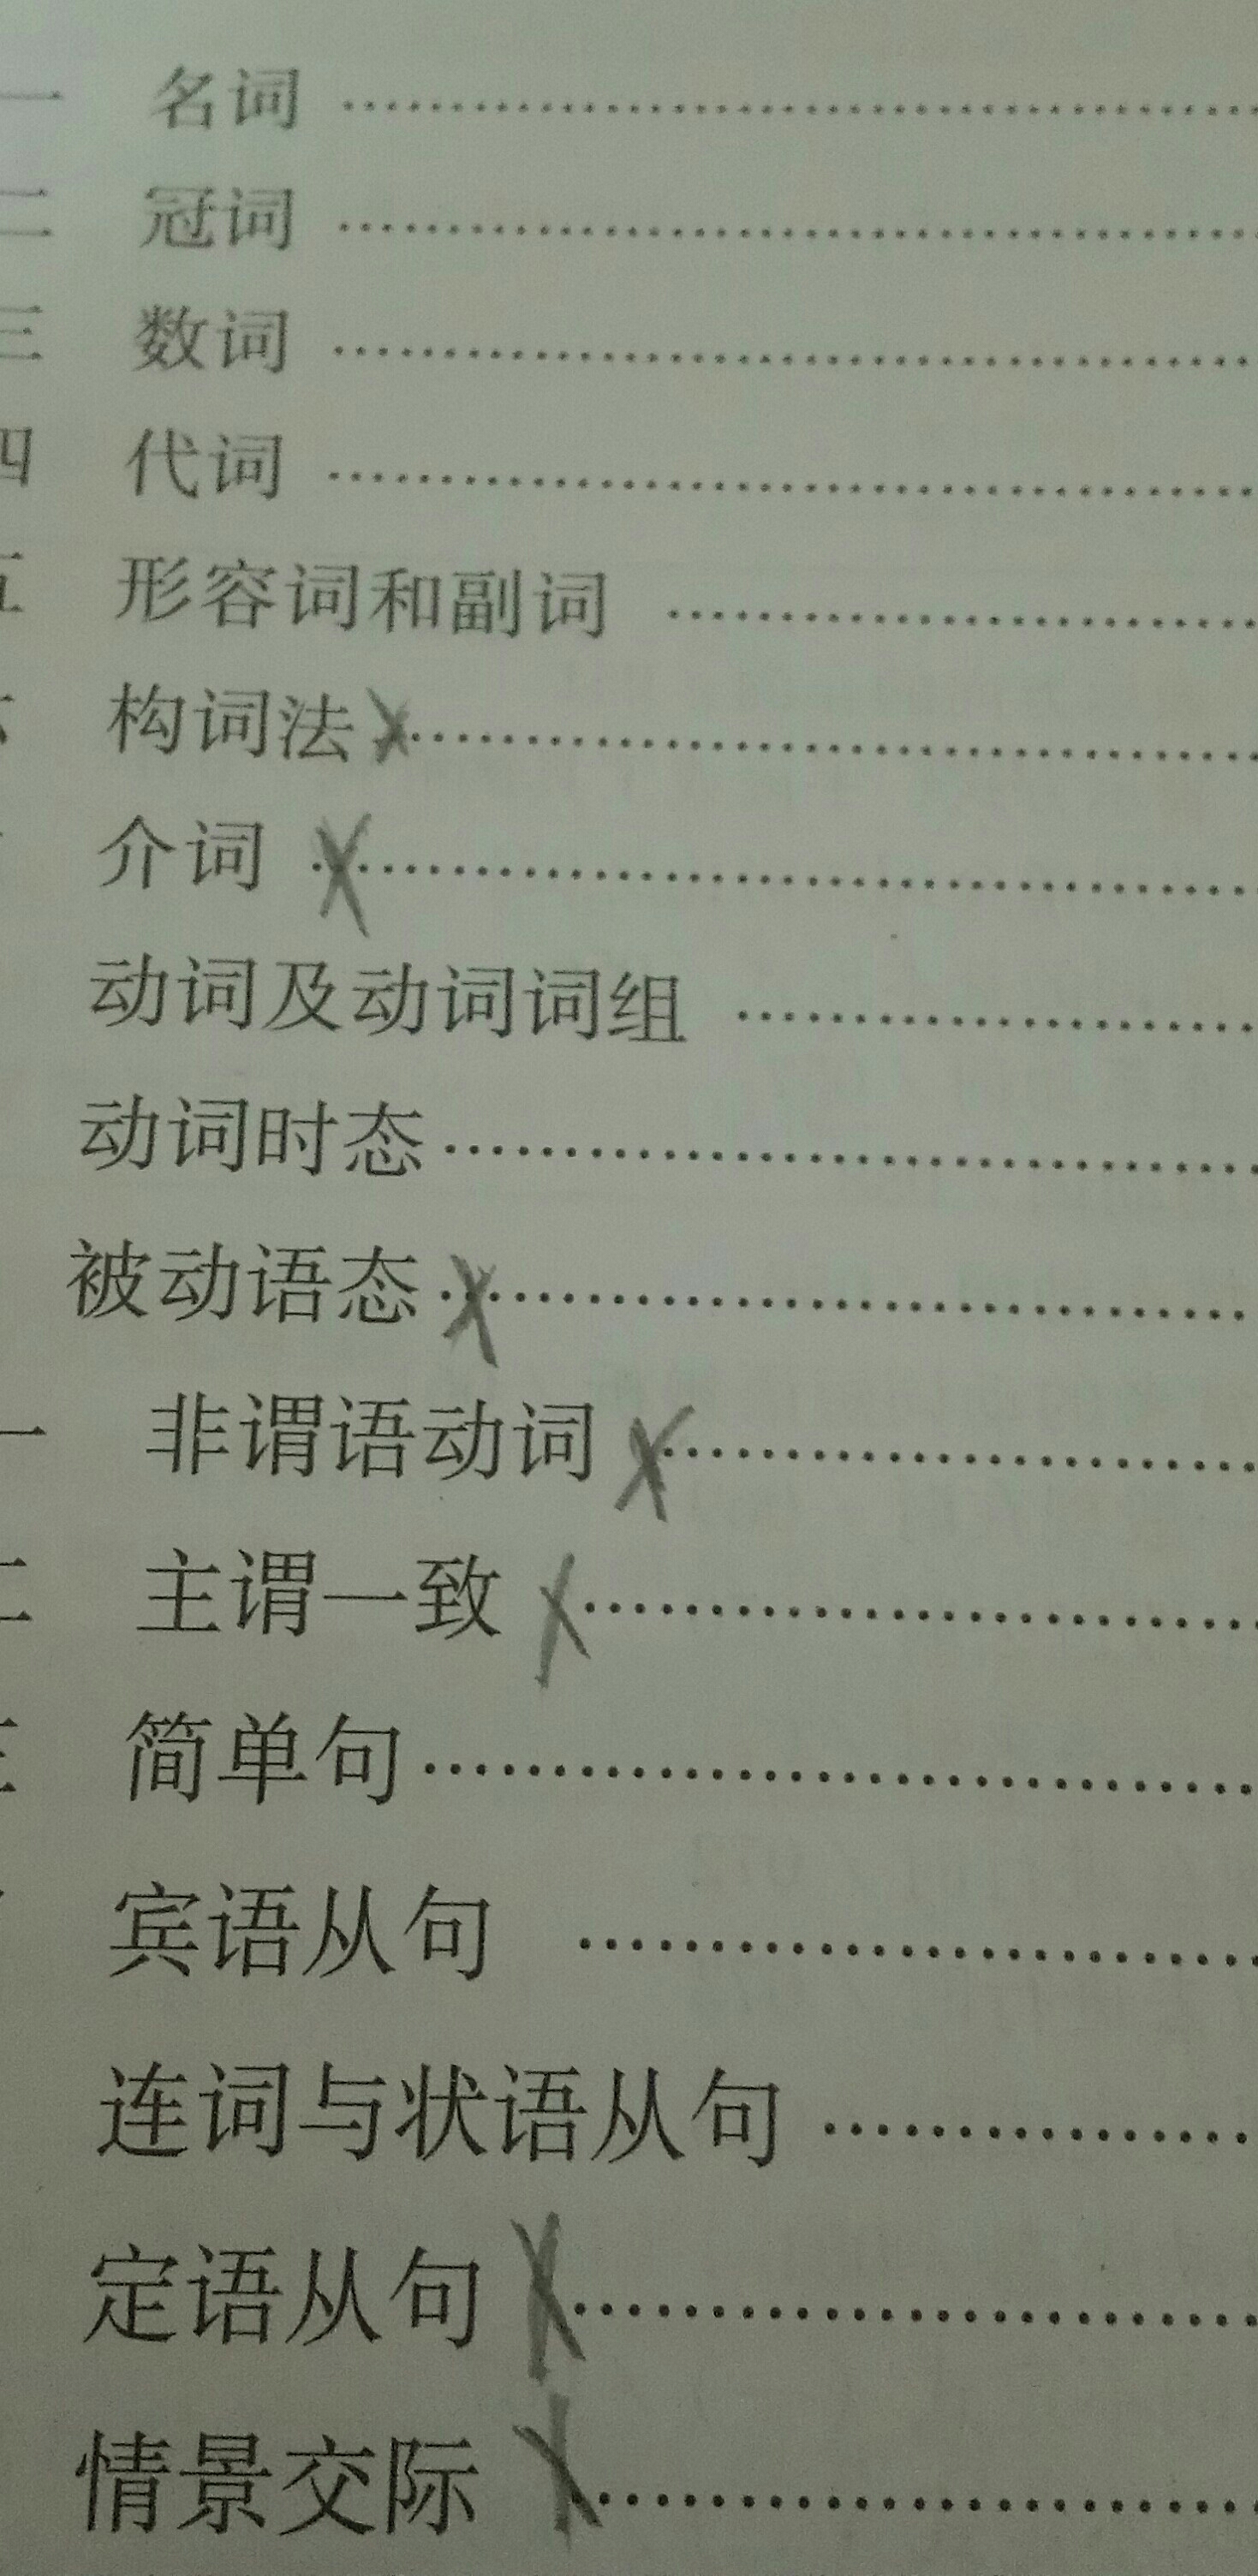 一 名词 ……………………
二 冠词 ……………………
三 数词 ……………………
四 代词 ……………………
五 形容词和副词 ……………………
六 构词法 ……………………
介词 ……………………
动词及动词词组 ……………………
动词时态 ……………………
被动语态 ……………………
一 非谓语动词 ……………………
二 主谓一致 ……………………
三 简单句 ……………………
宾语从句 ……………………
连词与状语从句 ……………………
定语从句 ……………………
情景交际 ……………………